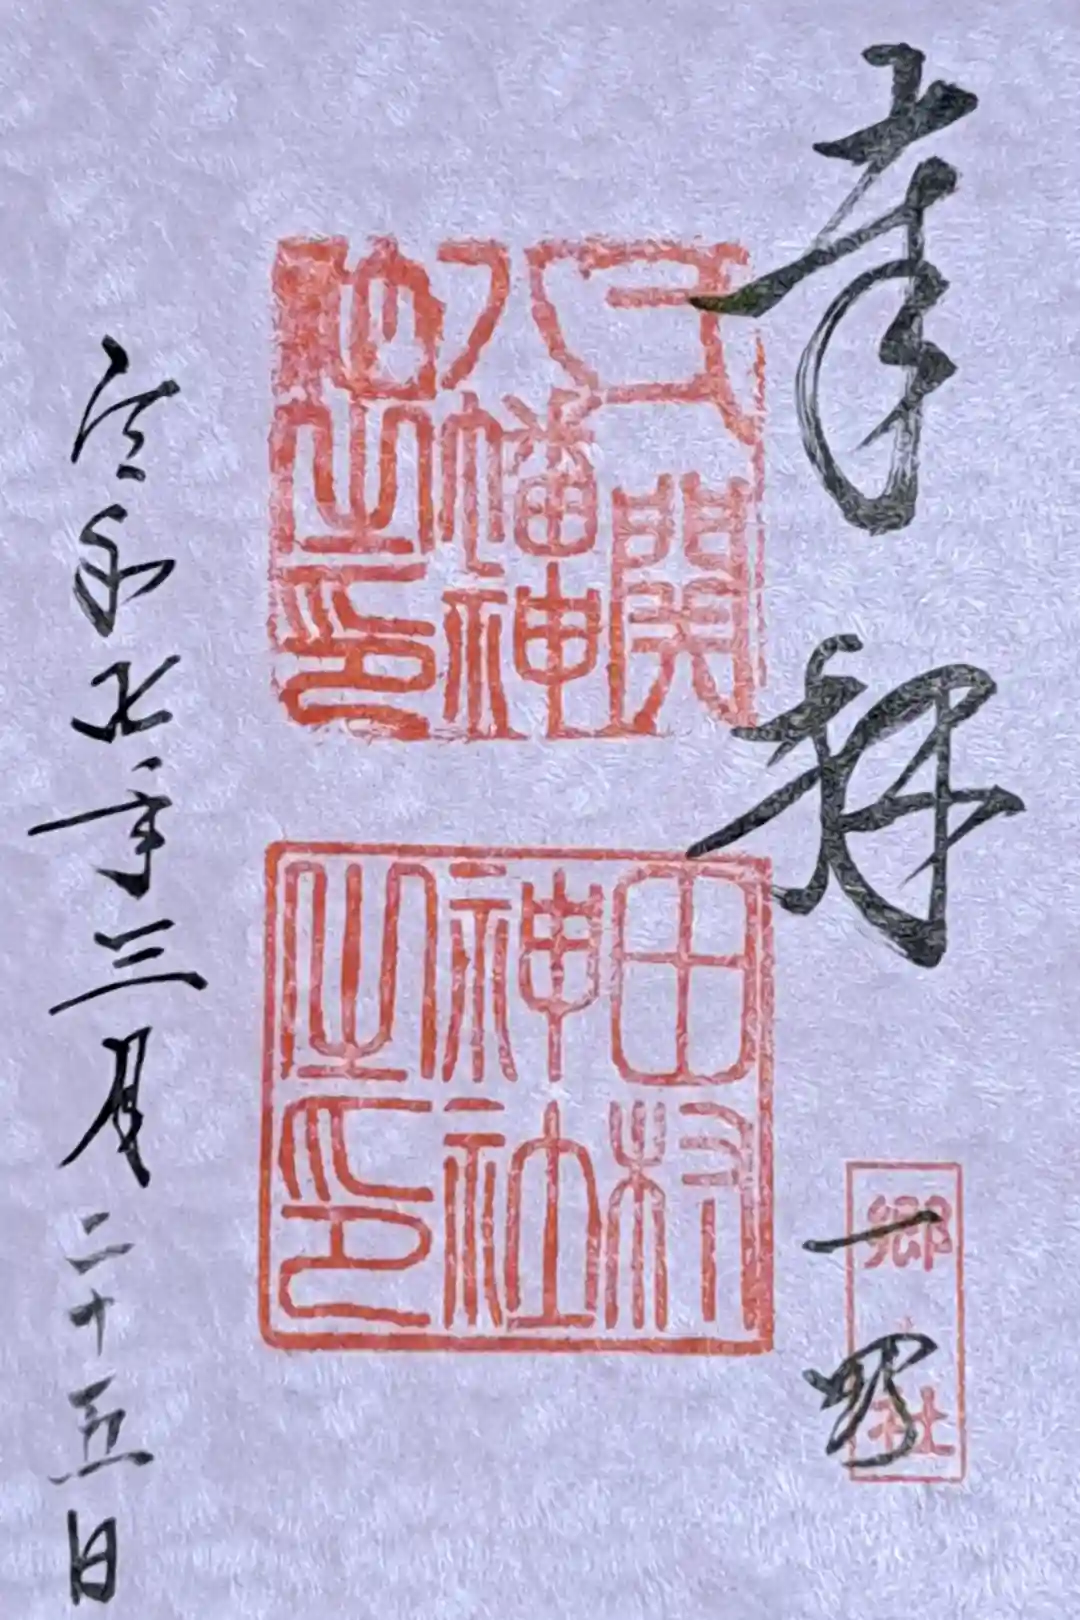 奉拝
一関
郷社
弌關
八幡神
社之印
田村
神社
之印
令和七年三月二十五日